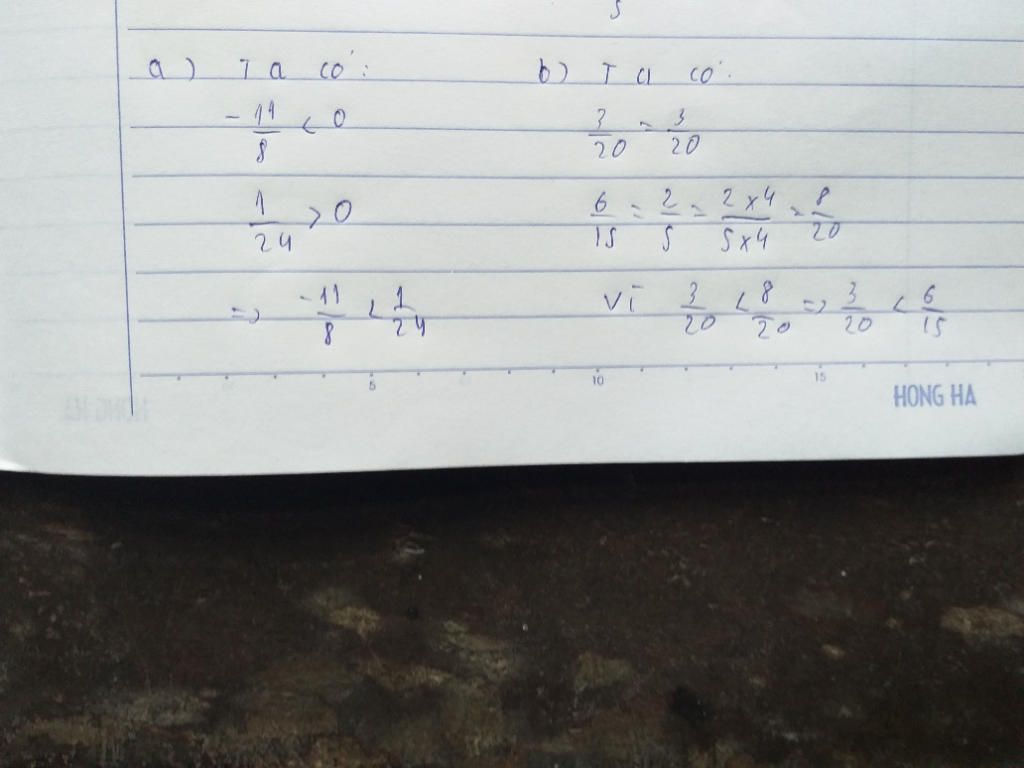 5
a) Ta có:
-11/8 < 0
1/24 > 0
=> -11/8 < 1/24
b) Ta có:
3/20 = 3/20
6/15 = 2/5 = 2x4/5x4 = 8/20
Vì 3/20 < 8/20 => 3/20 < 6/15
5 10 15
HONG HA